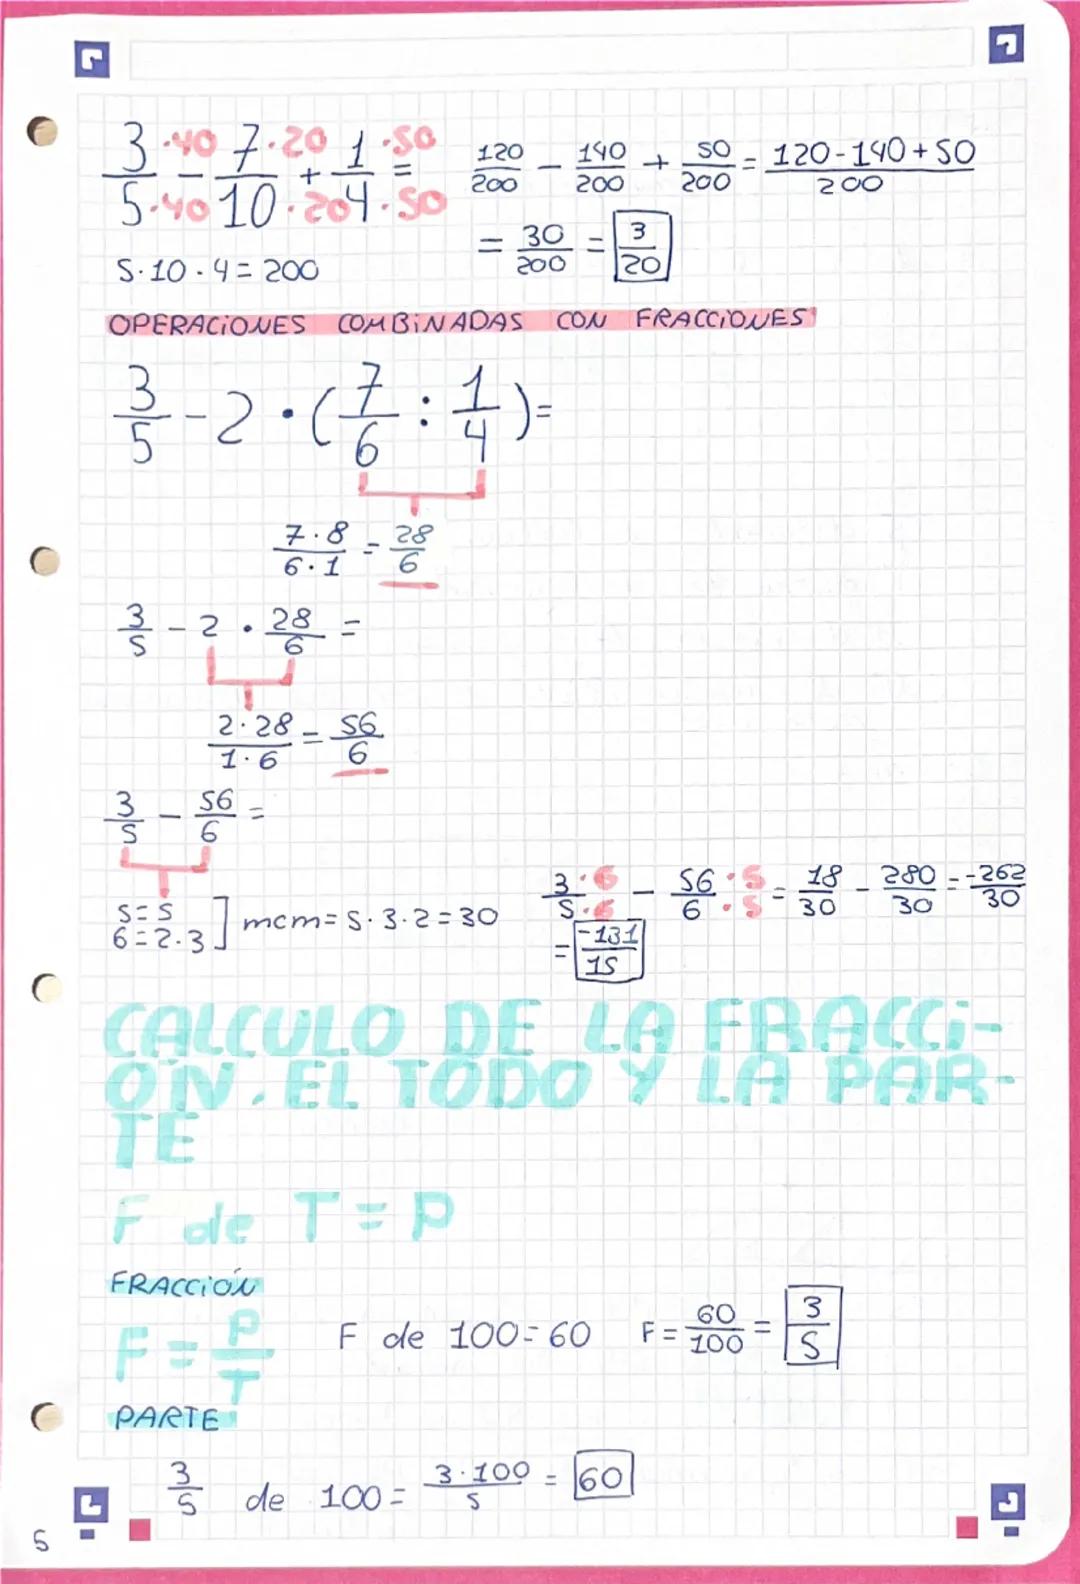 3·40/5·40 - 7·20/10·20 + 1·50/4·50 = 120/200 - 140/200 + 50/200 = 120-140+50/200
= 30/200 = 3/20
5·10·4=200
OPERACIONES COMBINADAS CON FRACCIONES
3/5 - 2 · (7/6 : 1/4) =
7·8/6·1 = 28/6
3/5 - 2 · 28/6 =
2·28/1·6 = 56/6
3/5 - 56/6 =
3·6/5·6 - 56·5/6·5 = 18/30 - 280/30 = -262/30
5=5
6=2·3] mcm=5·3·2=30
= -131/15
CALCULO DE LA FRACCI-
ÓN. EL TODO Y LA PAR-
TE
F de T = P
FRACCIÓN
F = P/T F de 100=60 F = 60/100 = 3/5
PARTE
3/5 de 100 = 3·100/5 = 60
5